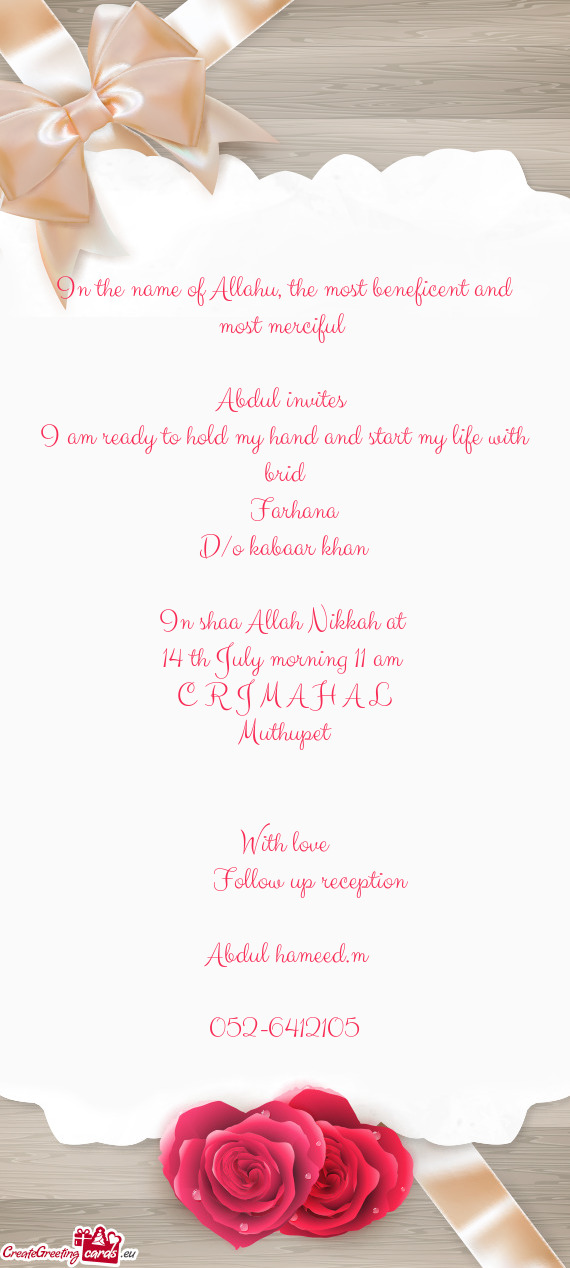 In the name of Allahu, the most beneficent and
most merciful
Abdul invites
I am ready to hold my hand and start my life with
brid
Farhana
D/o kabaar khan
In shaa Allah Nikkah at
14 th July morning 11 am
C R J M A H A L
Muthupet
With love
Follow up reception
Abdul hameed.m
052-6412105
CreateGreeting cards .eu